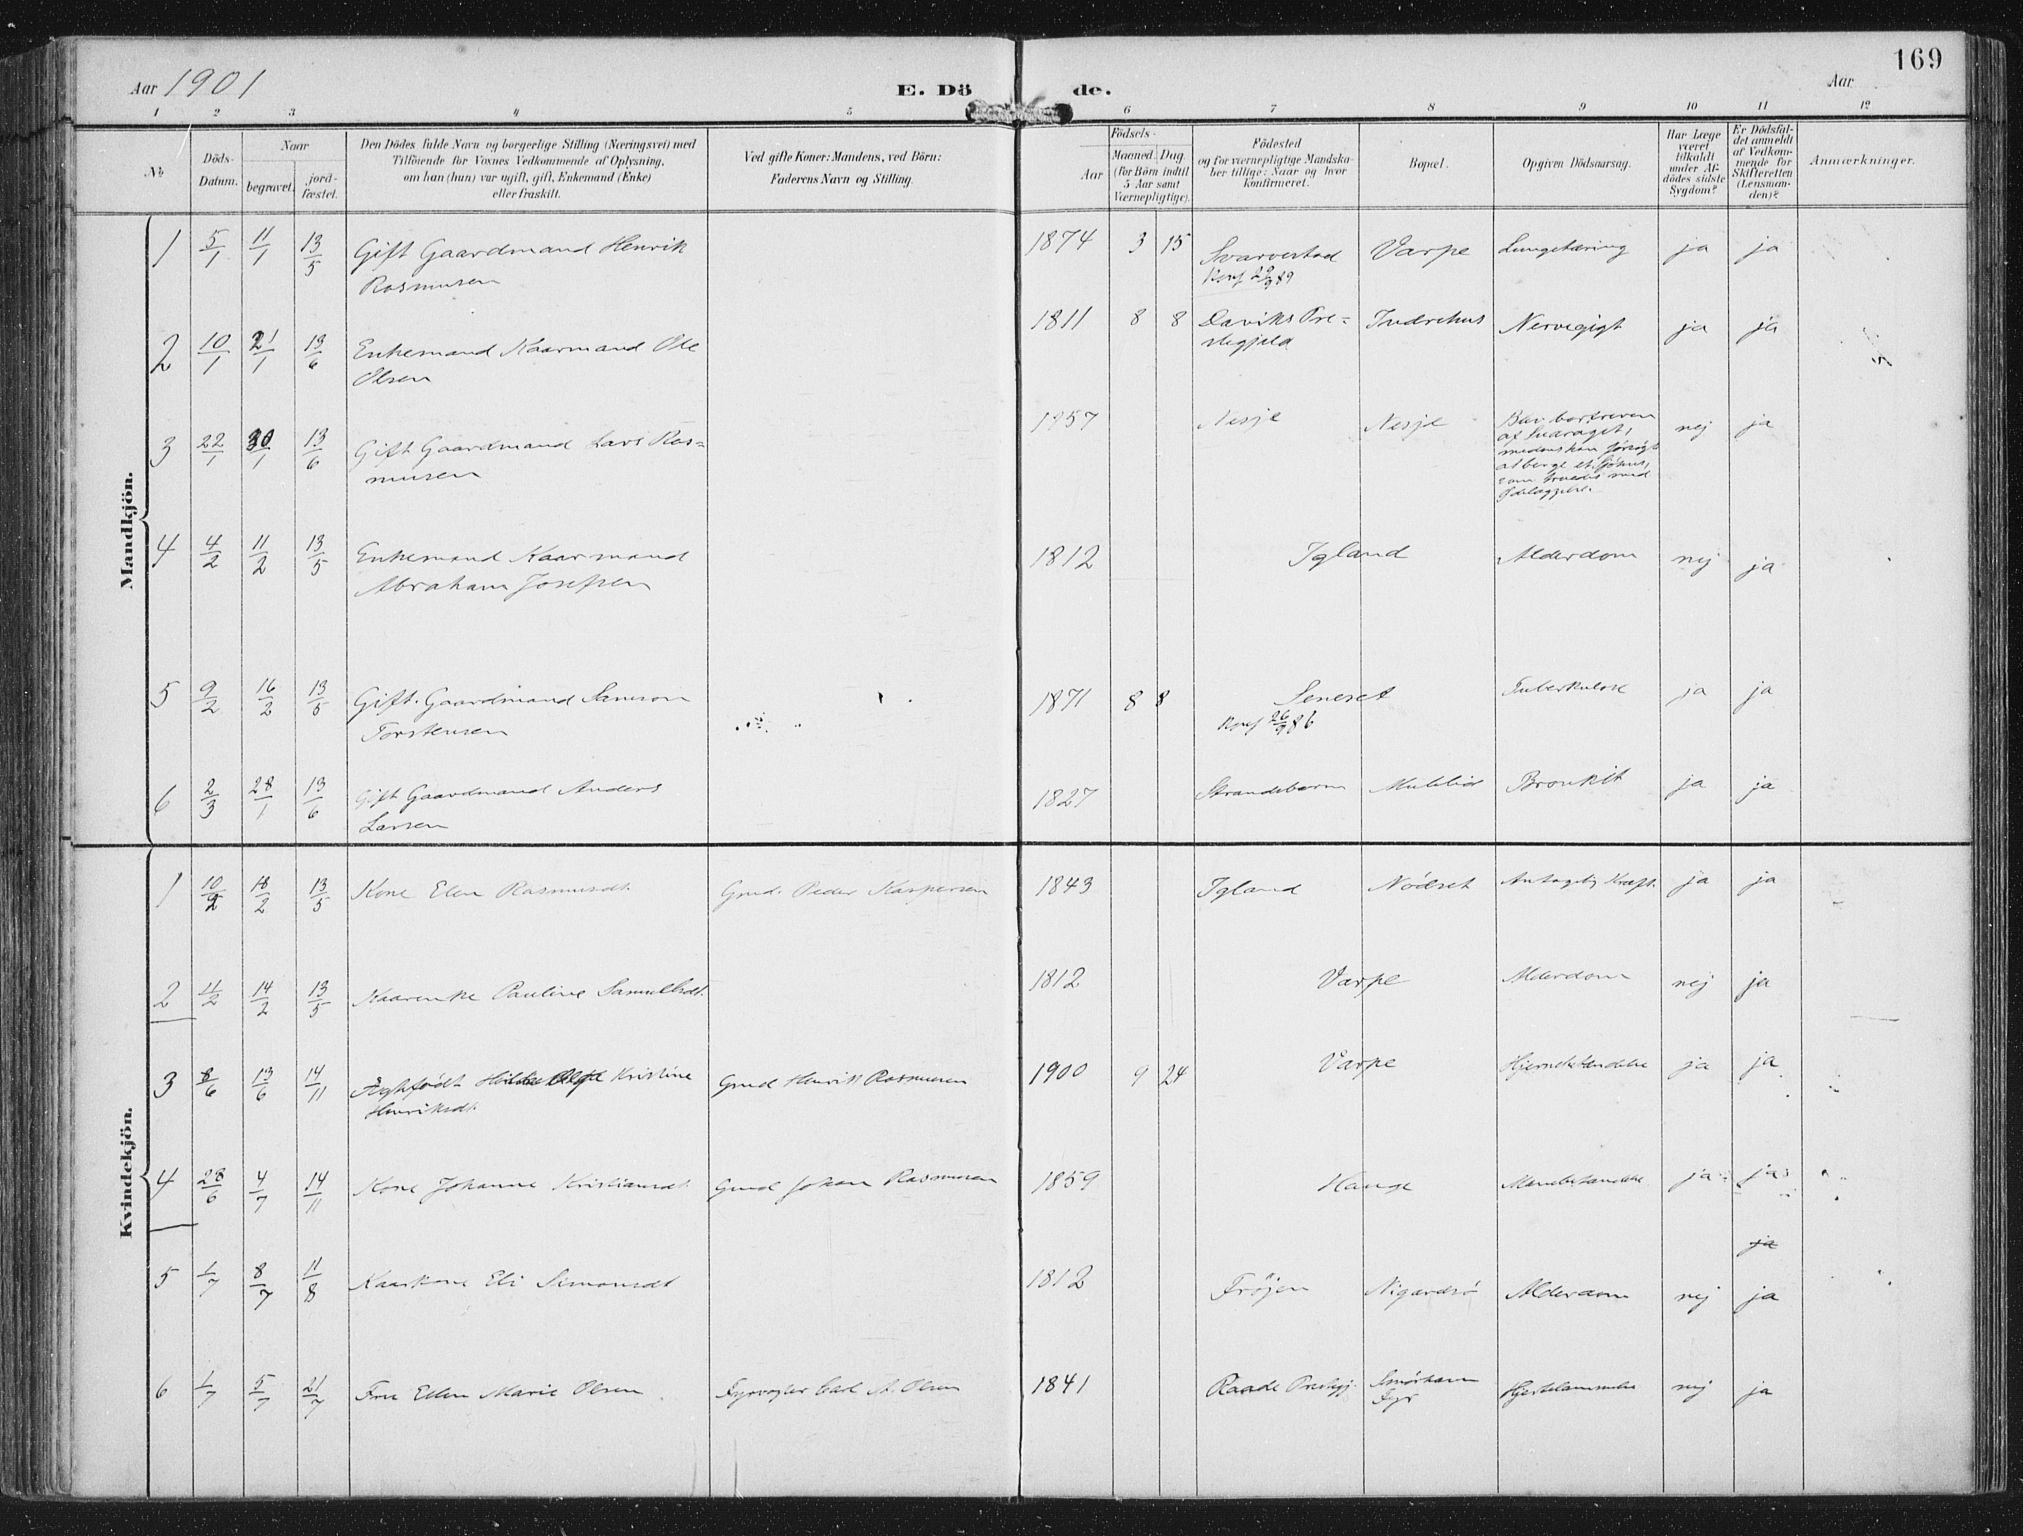 169
Aar 1901
E. Dö de.
Aar
1 2 3 4 5 6 7 8 9 10 11 12
№
Döds-Datum.
Naar
begravet.
jord-fæstet.
Den Dödes fulde Navn og borgerlige Stilling (Næringsvei) med
Tilföiende for Voxnes Vedkommende af Oplysning,
om han (hun) var ugift, gift, Enkemand (Enke)
eller fraskilt.
Ved gifte Koner: Mandens, ved Börn:
Faderens Navn og Stilling.
Födsels-
Aar
Maaned. Dag.
(for Börn indtil
5 Aar samt
Værnepligtige).
Födested
og for værnepligtige Mandska-
ber tillige: Naar og hvor
konfirmeret.
Bopæl.
Opgiven Dödsaarsag.
Har Læge
været
tilkaldt
under Af-
dödes sidste
Sygdom?
Er Dödsfal-
det anmeldt
af Vedkom-
mende for
Skifteretten
(Lensman-
den)?
Anmærkninger.
Mandkjön.
1 5/1 11/1 13/5 Gift Gaardmand Henrik 1874 3 15 Svarvestad Varpe Lungetæring ja ja
Rasmusen Konf 29/9 89
2 10/1 21/1 13/6 Enkemand Kaarmand Ole 1811 8 8 Daviks Pre- Indrehus Nervegigt ja ja
Olsen stegjeld
3 22/1 30/1 13/6 Gift Gaardmand Lars Ras- 1857 Nesje Nesje Blev bortreven nej ja
musen af Sudraget,
medens han forsøgt
at berge et Sjöhus,
som truedes med
Ødelæggelse.
4 4/2 11/2 13/5 Enkemand Kaarmand 1812 Igland Alderdom nej ja
Abraham Josefsen
5 9/2 16/2 13/5 Gift. Gaardmand Samson 1871 8 8 Seneset Tuberkulose ja ja
Torstensen Konf 26/9 86
6 2/3 28/1 13/6 Gift Gaardmand Anders 1827 Strandebarm Muleliд Bronkit ja ja
Larsen
Kvindekjön.
1 10/2 18/2 13/5 Kone Elen Rasmusdt. Gmd. Peder Kaspersen 1843 Igland Nödset Antagelig Kræft. ja ja
2 11/2 14/2 13/5 Kaarenke Pauline Samuelsdt. 1812 Varpe Alderdom nej ja
3 8/6 13/6 14/11 Ægtefødt Kristine Gmd Henrik Rasmusen 1900 9 24 Varpe Hjernebetændelse ja ja
Henriksdt.
4 28/6 4/7 14/11 Kone Johanne Kristiansdt. Gmd Johan Rasmusen 1859 Hauge ja ja
ja
5 1/7 8/7 11/8 Kaarkone Eli Simonsdt 1812 Frøjen Nigardsö Alderdom nej ja
6 1/7 5/7 21/7 Frue Ellen Marie Olsen Fyrvogter Carl A. Olsen 1841 Raade Prestegj. Smörhavn Hjertelammelse nej ja
Fyr